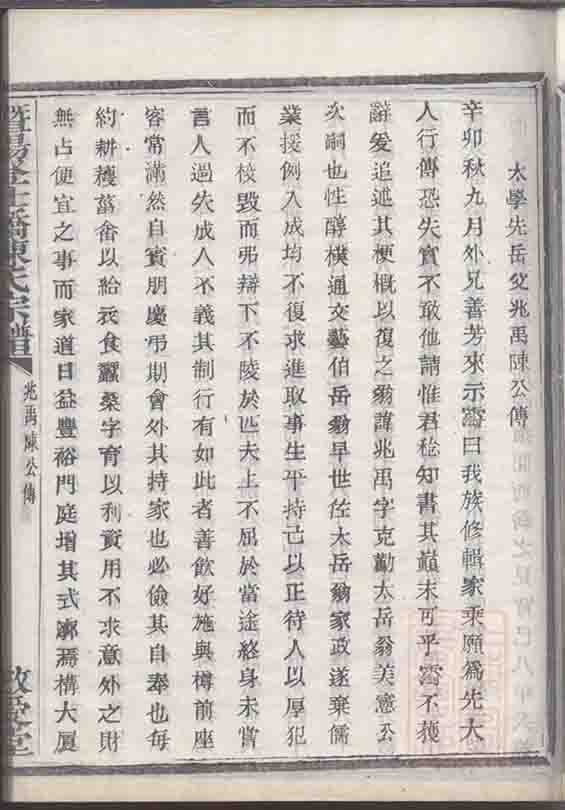 太學先岳父兆禹陳公傳
辛卯秋九月外兄善芳來示霱曰我族修輯家乘願爲先大
人行傳恐失實不敢他請惟君稔知書其巔末可乎霱不獲
辭爰追述其梗概以復之翁諱兆禹字克勤太岳翁美憲公
次嗣也性醇樸通文藝伯岳翁早世佐太岳翁家政遂棄儒
業援例入成均不復求進取事生平持己以正待人以厚犯
而不校毀而弗辯下不陵於匹夫上不屈於當途終身未嘗
言人過失成人不義其制行有如此者善飲好施與樽前座
客常滿然自賓朋慶弔期會外其持家也必儉其自奉也每
約耕穫菑畬以給衣食蠶桑字育以利資用不求意外之財
無占便宜之事而家道日益豐裕門庭增其式廓焉構大厦
暨陽金士橋陳氏宗譜
兆禹陳公傳
敦愛堂